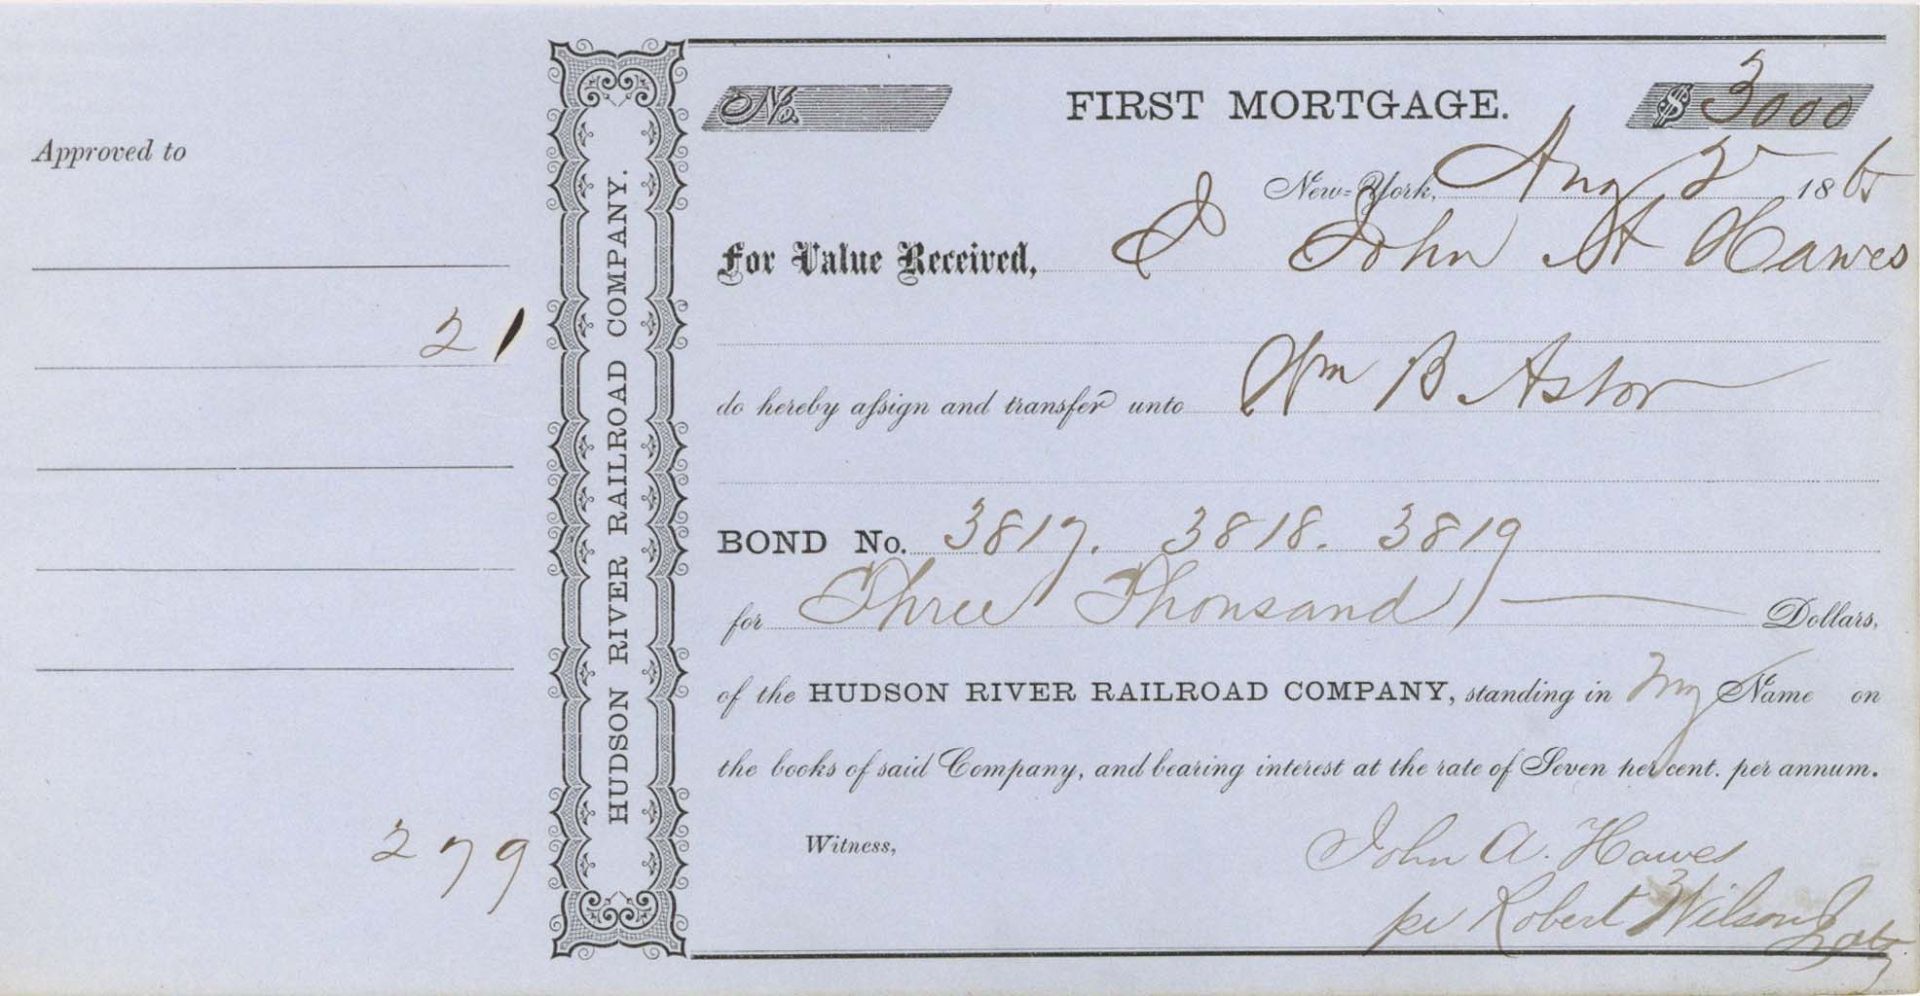 Approved to
21
279
HUDSON RIVER RAILROAD COMPANY.
No.
FIRST MORTGAGE.
$ 3000
New-York, Aug 2 1865
For Value Received, I John A Hawes
do hereby assign and transfer unto Wm B Astor
BOND No. 3817. 3818. 3819
for Three Thousand Dollars,
of the HUDSON RIVER RAILROAD COMPANY, standing in my Name on
the books of said Company, and bearing interest at the rate of Seven per cent. per annum.
Witness,
John A. Hawes
per Robert Wilson